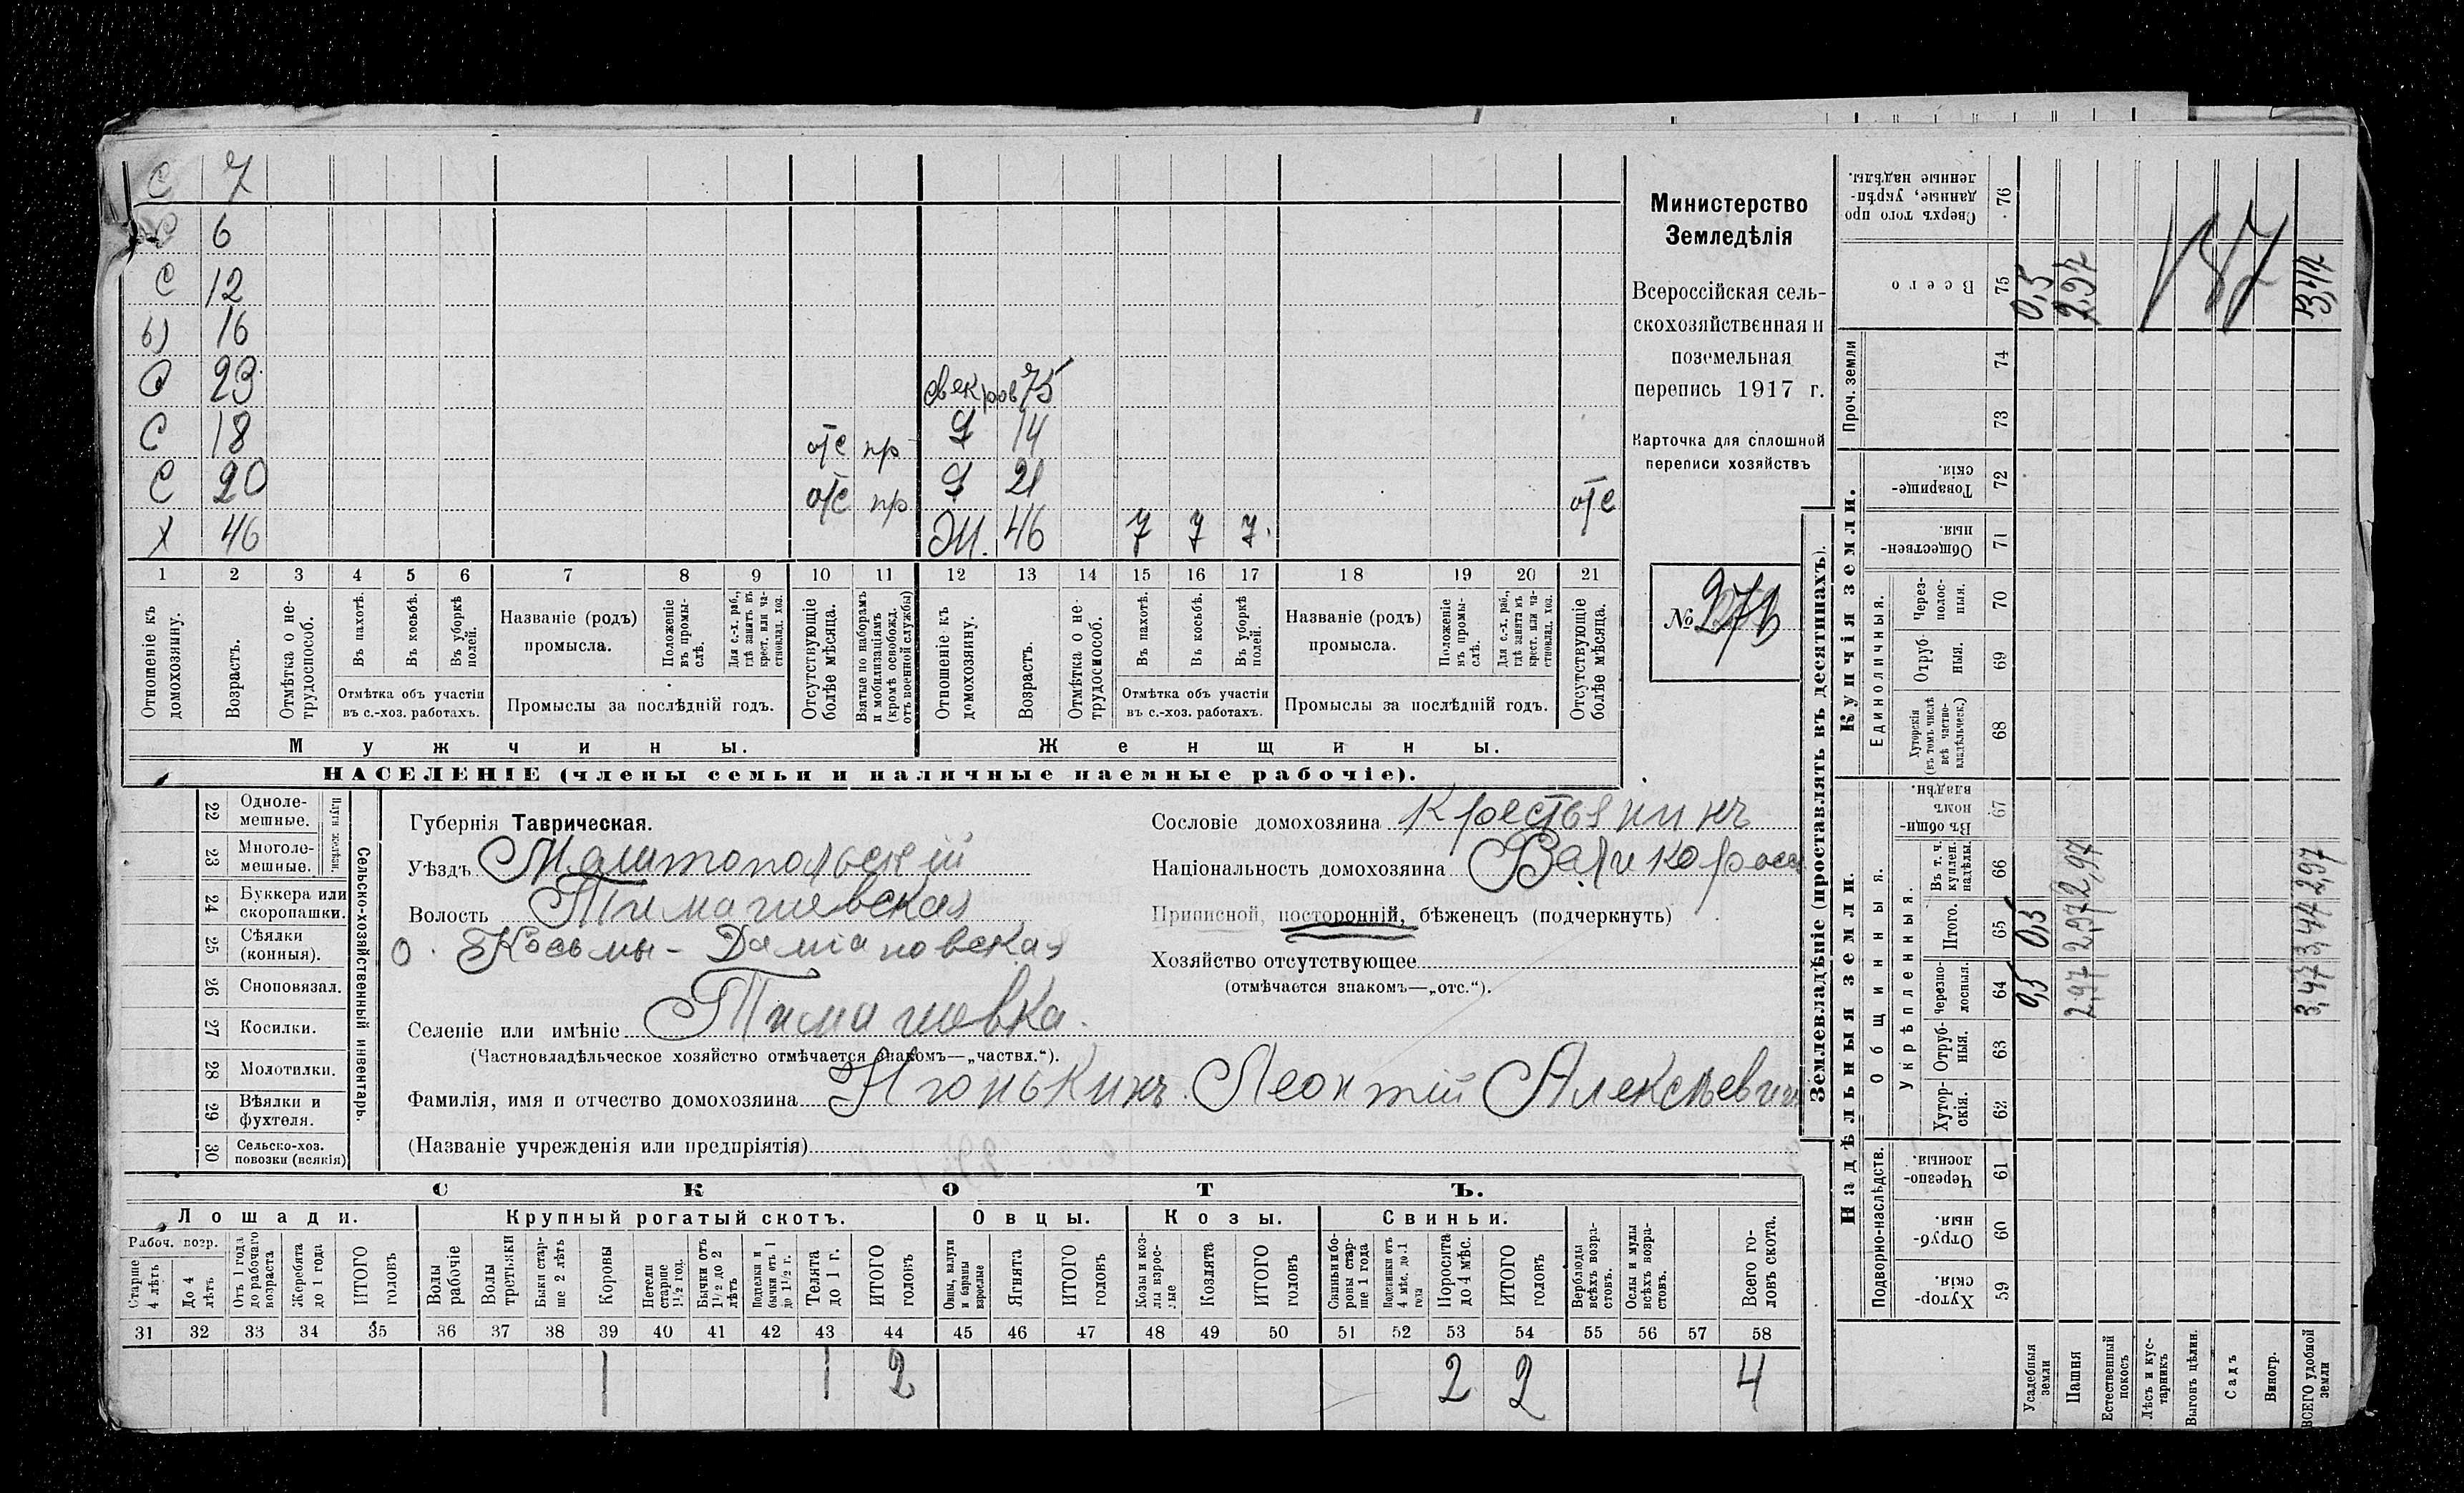 С 7
6
С 12
16
23
свекров 75
С 18 отс пр Д 14
С 20 отс пр Д 21
Х 46 Ж. 46 7 7 7. отс
1 2 3 4 5 6 7 8 9 10 11 12 13 14 15 16 17 18 19 20 21
Отношеніе къ домохозяину.
Возрастъ.
Отмѣтка о не-трудоспособ.
Въ пахотѣ.
Въ косьбѣ.
Въ уборкѣ полей.
Отмѣтка объ участіи
въ с.-хоз. работахъ.
Названіе (родъ)
промысла.
Положеніе въ промы-слѣ.
Для с.-х. раб., гдѣ занятъ въ крест. или ча-стновлад. хоз.
Промыслы за послѣдній годъ.
Отсутствующіе болѣе мѣсяца.
Взятые по наборамъ и мобилизаціямъ (кромѣ освобожд. отъ военной службы)
Отношеніе къ домохозяину.
Возрастъ.
Отмѣтка о не-трудоспособ.
Въ пахотѣ.
Въ косьбѣ.
Въ уборкѣ полей.
Отмѣтка объ участіи
въ с.-хоз. работахъ.
Названіе (родъ)
промысла.
Положеніе въ промы-слѣ.
Для с.-х. раб., гдѣ занята въ крест. или ча-стновлад. хоз.
Промыслы за послѣдній годъ.
Отсутствующіе болѣе мѣсяца.
Мужчины. Женщины.
НАСЕЛЕНІЕ (члены семьи и наличные наемные рабочіе).
Министерство
Земледѣлія
Всероссійская сель-
скохозяйственная и
поземельная
перепись 1917 г.
Карточка для сплошной
переписи хозяйствъ
№
22 Одноле-мешные.
23 Многоле-мешные.
Плуги желѣзн.
24 Буккера или скоропашки.
25 Сѣялки (конныя).
26 Сноповязал.
27 Косилки.
28 Молотилки.
29 Вѣялки и фухтеля.
30 Сельско-хоз. повозки (всякія)
Сельско-хозяйственный инвентарь.
Губернія Таврическая.
Уѣздъ Мелитопольскій
Волость Тимашевская
о. Косьмы-Даміановская
Селеніе или имѣніе Тимашовка.
(Частновладѣльческое хозяйство отмѣчается знакомъ—„частвл.“).
Фамилія, имя и отчество домохозяина Игонькинъ Леонтій Алексѣевич
(Названіе учрежденія или предпріятія)
Сословіе домохозяина Крестьянинъ
Національность домохозяина Великоросс
Приписной, посторонній, бѣженецъ (подчеркнуть)
Хозяйство отсутствующее
(отмѣчается знакомъ—„отс.“).
СКОТЪ.
Лошади. Крупный рогатый скотъ. Овцы. Козы. Свиньи.
Рабоч. возр.
Старше 4 лѣтъ
До 4 лѣтъ
Отъ 1 года до рабочаго возраста
Жеребята до 1 года
ИТОГО головъ
Волы рабочіе
Волы третьяки
Быки стар-ше 2 лѣтъ
Коровы
Нетели старше 1½ год.
Бычки отъ 1½ до 2 лѣтъ
Подтелки и бычки отъ 1 до 1½ г.
Телята до 1 г.
ИТОГО головъ
Овцы, валухи и бараны взрослые
Ягнята
ИТОГО головъ
Козы и коз-лы взрос-лые
Козлята
ИТОГО головъ
Свиньи и бо-ровы стар-ше 1 года
Подсвинки отъ 4 мѣс. до 1 года
Поросята до 4 мѣс.
ИТОГО головъ
Верблюды всѣхъ возра-стовъ.
Ослы и мулы всѣхъ возра-стовъ.
Всего го-ловъ скота.
31 32 33 34 35 36 37 38 39 40 41 42 43 44 45 46 47 48 49 50 51 52 53 54 55 56 57 58
1 1 2 2 2 4
Землевладѣніе (проставлять въ десятинахъ).
Надѣльныя земли. Купчія земли. Проч. земли
Подворно-наслѣдств.
Общинныя.
Укрѣпленныя.
Единоличныя.
59 Хутор-скія.
60 Отруб-ныя.
61 Черезпо-лосныя.
62 Хутор-скія.
63 Отруб-ныя.
64 черезпо-лосныя.
65 Итого.
66 Въ т. ч. куплен. надѣлы.
67 Въ общи-номъ владѣн.
68 Хуторскія (въ томъ числѣ всѣ частно-владѣльческ.)
69 Отруб-ныя.
70 Через-полос-ныя.
71 Обществен-ныя.
72 Товарище-скія.
73
74
75 Всего
76 Сверхъ того про-данные, укрѣп-ленные надѣлы.
Усадебныя земли 0,5 0,5 0,5
Пашня 2,97 2,97 2,97 2,97
Естественный покосъ
Лѣсъ и кус-тарникъ
Выгонъ цѣлин.
Садъ
Виногр.
ВСЕГО удобной земли 3,47 3,47 2,97 3,47